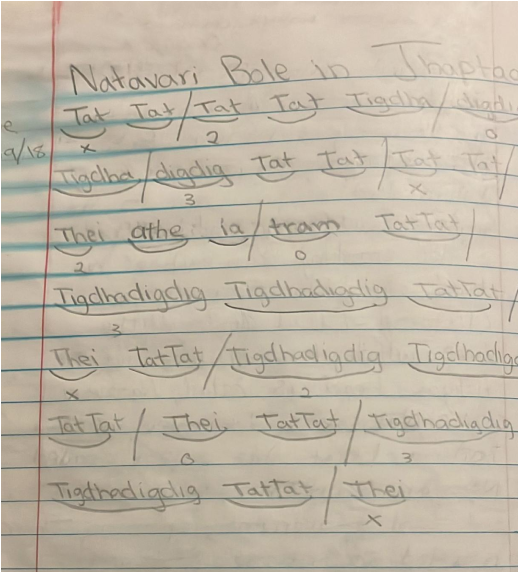 Natavari Bole in Jhaptaa
e Tat Tat / Tat Tat Tigdha / digdi
9/18 x 2 0
Tigdha / digdig Tat Tat / Tat Tat /
3 x
Thei athe ia / tram TatTat /
2 0
Tigdhadigdig Tigdhadigdig TatTat /
3
Thei TatTat / Tigdhadigdig Tigdhadigd
x 2
TatTat / Thei TatTat / Tigdhadigdig
0 3
Tigdhadigdig TatTat / Thei
x